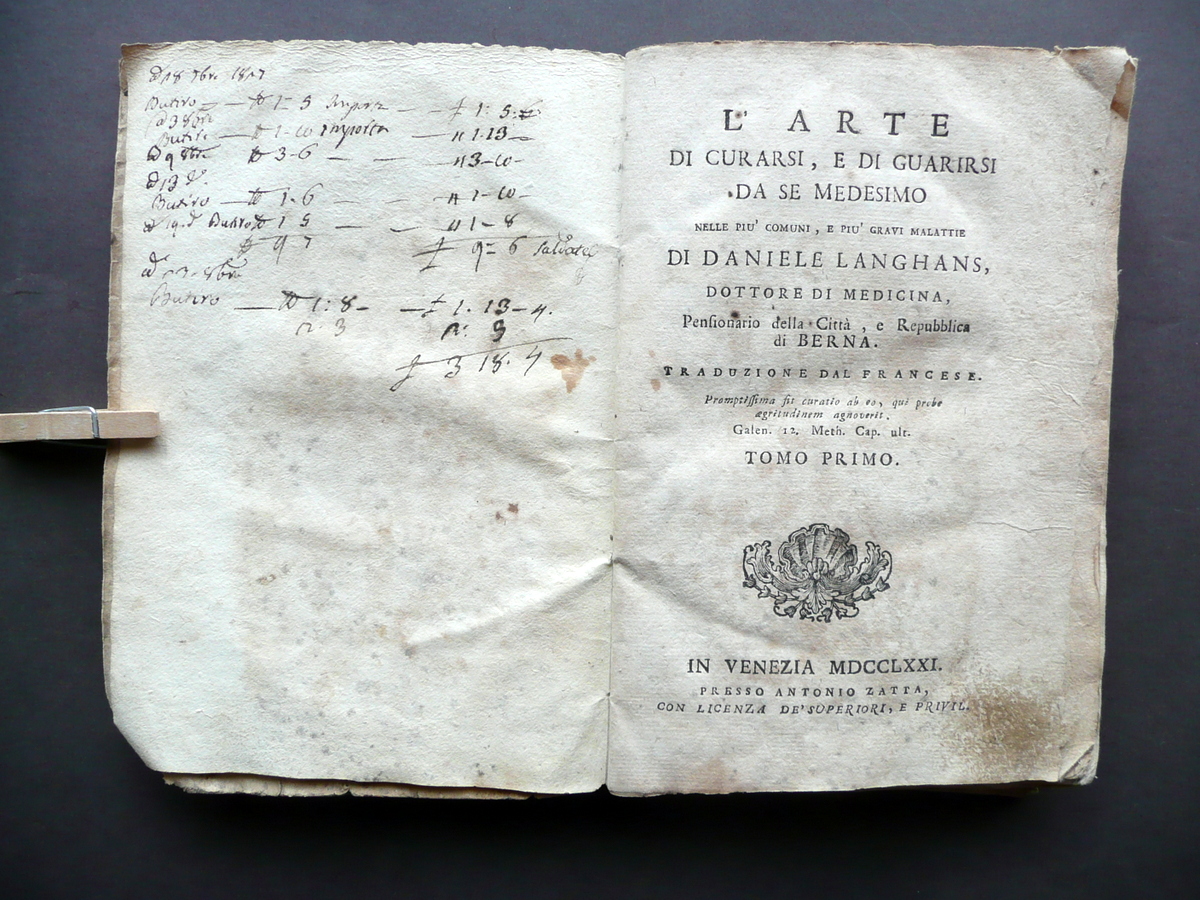 Butiro — 1-5 — 1: 5:
Butiro — 1-10 importa — 1-13 —
3-6 — — 3-10 —
Butiro — 1-6 — — 1-10 —
Butiro 1 5 — — 1-8
9 7 9= 6
Butiro — 1:8- — 1. 13-4.
n: 3 n: 3
3 18. 4
L' ARTE
DI CURARSI, E DI GUARIRSI
DA SE MEDESIMO
NELLE PIU' COMUNI, E PIU' GRAVI MALATTIE
DI DANIELE LANGHANS,
DOTTORE DI MEDICINA,
Penſionario della Città, e Repubblica
di BERNA.
TRADUZIONE DAL FRANCESE.
Promptiſſima fit curatio ab eo, qui probe
ægritudinem agnoverit.
Galen. 12. Meth. Cap. ult.
TOMO PRIMO.
IN VENEZIA MDCCLXXI.
PRESSO ANTONIO ZATTA,
CON LICENZA DE' SUPERIORI, E PRIVIL.